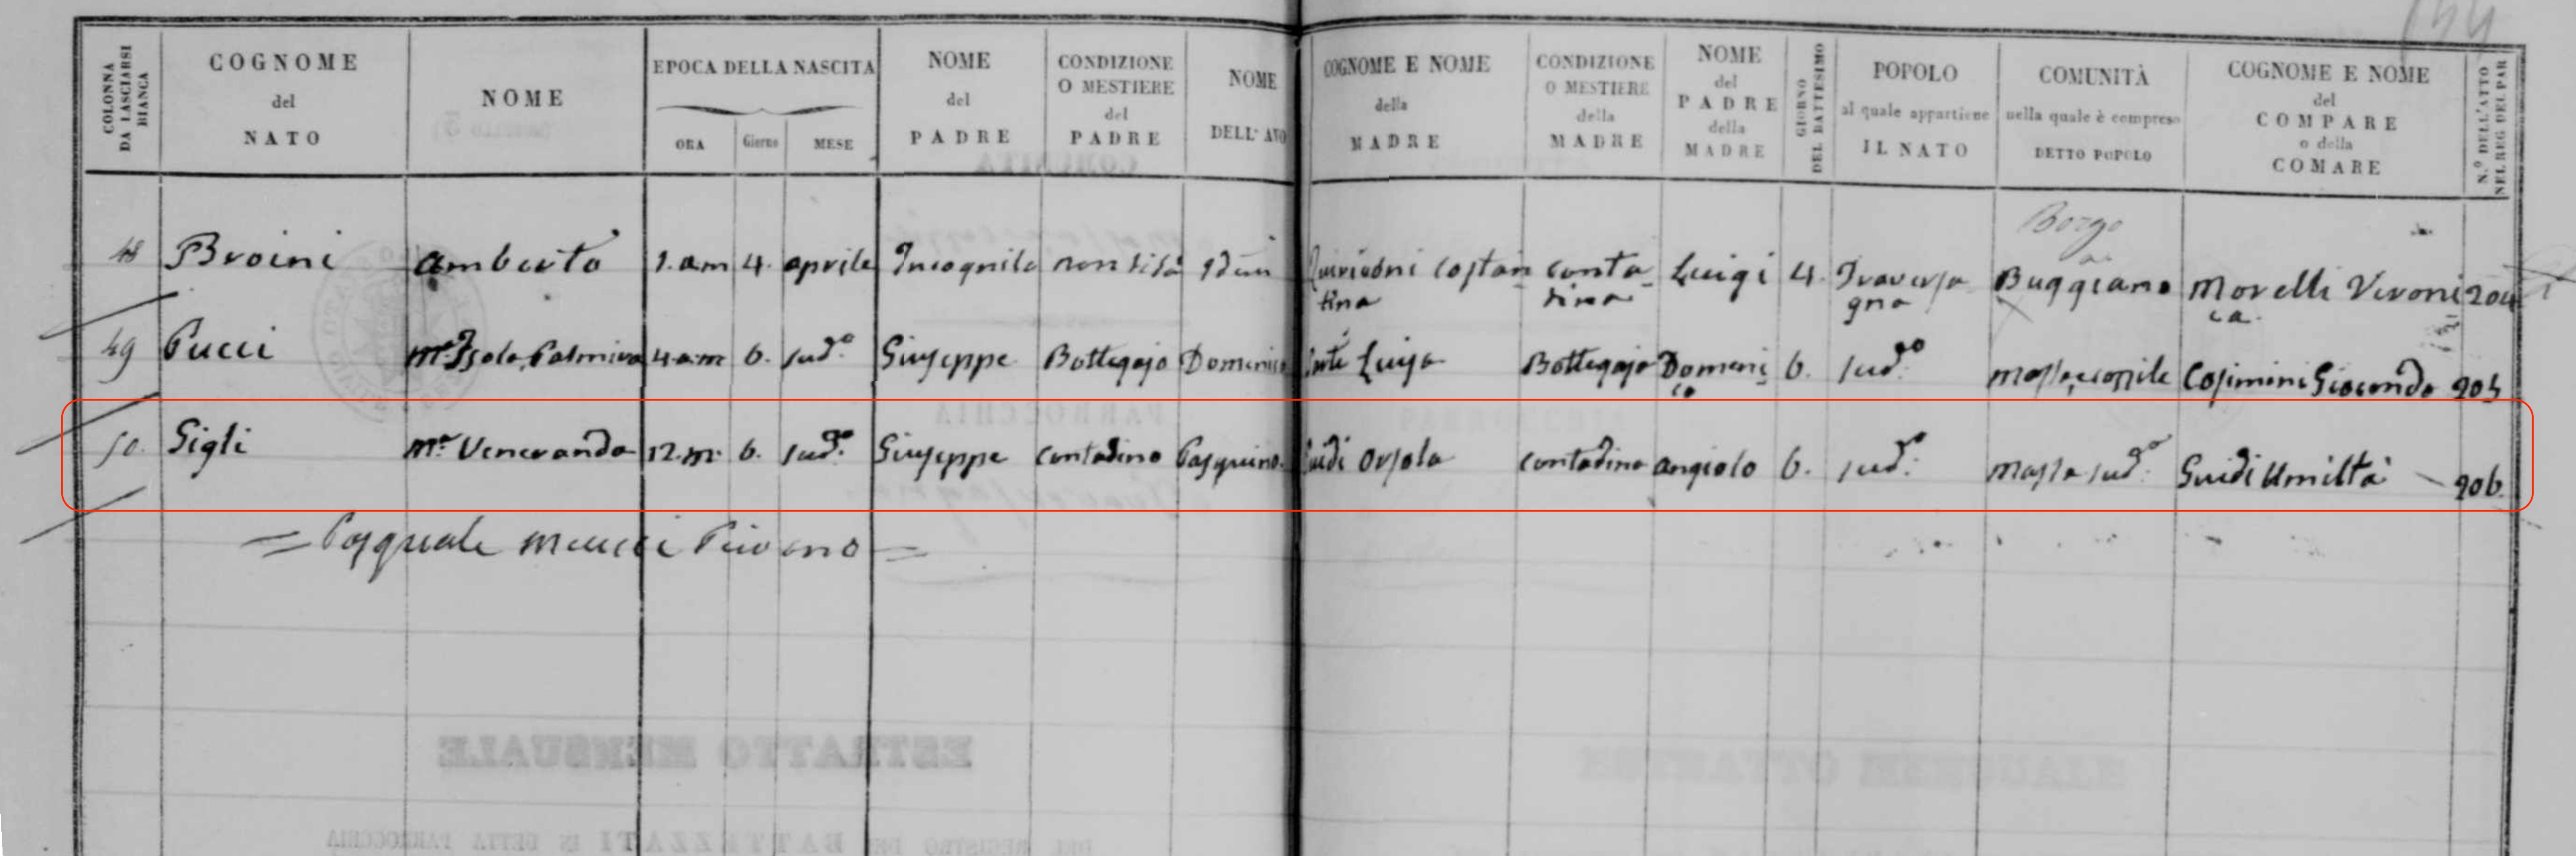 COLONNA DA LASCIARSI BIANCA
COGNOME del NATO
NOME
EPOCA DELLA NASCITA
ORA
Giorno
MESE
NOME del PADRE
CONDIZIONE O MESTIERE del PADRE
NOME DELL' AVO
COGNOME E NOME della MADRE
CONDIZIONE O MESTIERE della MADRE
NOME del PADRE della MADRE
GIORNO DEL BATTESIMO
POPOLO al quale appartiene IL NATO
COMUNITÀ nella quale è compreso DETTO POPOLO
COGNOME E NOME del COMPARE o della COMARE
N.º DELL'ATTO NEL REG. DEL PAR
Borgo
48 Broini Amberto 1. a.m 4. aprile Incognito non si sà Costan tina conta dina Luigi 4. Traversa gna Buggiano Morelli Veroni ca. 204
49 Pucci Mª Isola, Palmira 4. a.m 6. sudº Giuseppe Bottegajo Domenico Luisa Bottegaja Domeni co 6. sudº Massa, e cozzile Cosimini Gioconda 205
50. Gigli Mª Veneranda 12. m. 6. sudº Giuseppe contadino Pasquino. Guidi Orsola contadina angiolo 6. sudº Massa sudº Guidi Umiltà 206.
= Pasquale Meucci Pievano =
ESTRATTO MENSUALE
DEL REGISTRO DEI BATTEZZATI IN DETTA PARROCCHIA
COMUNITA
PARROCCHIA